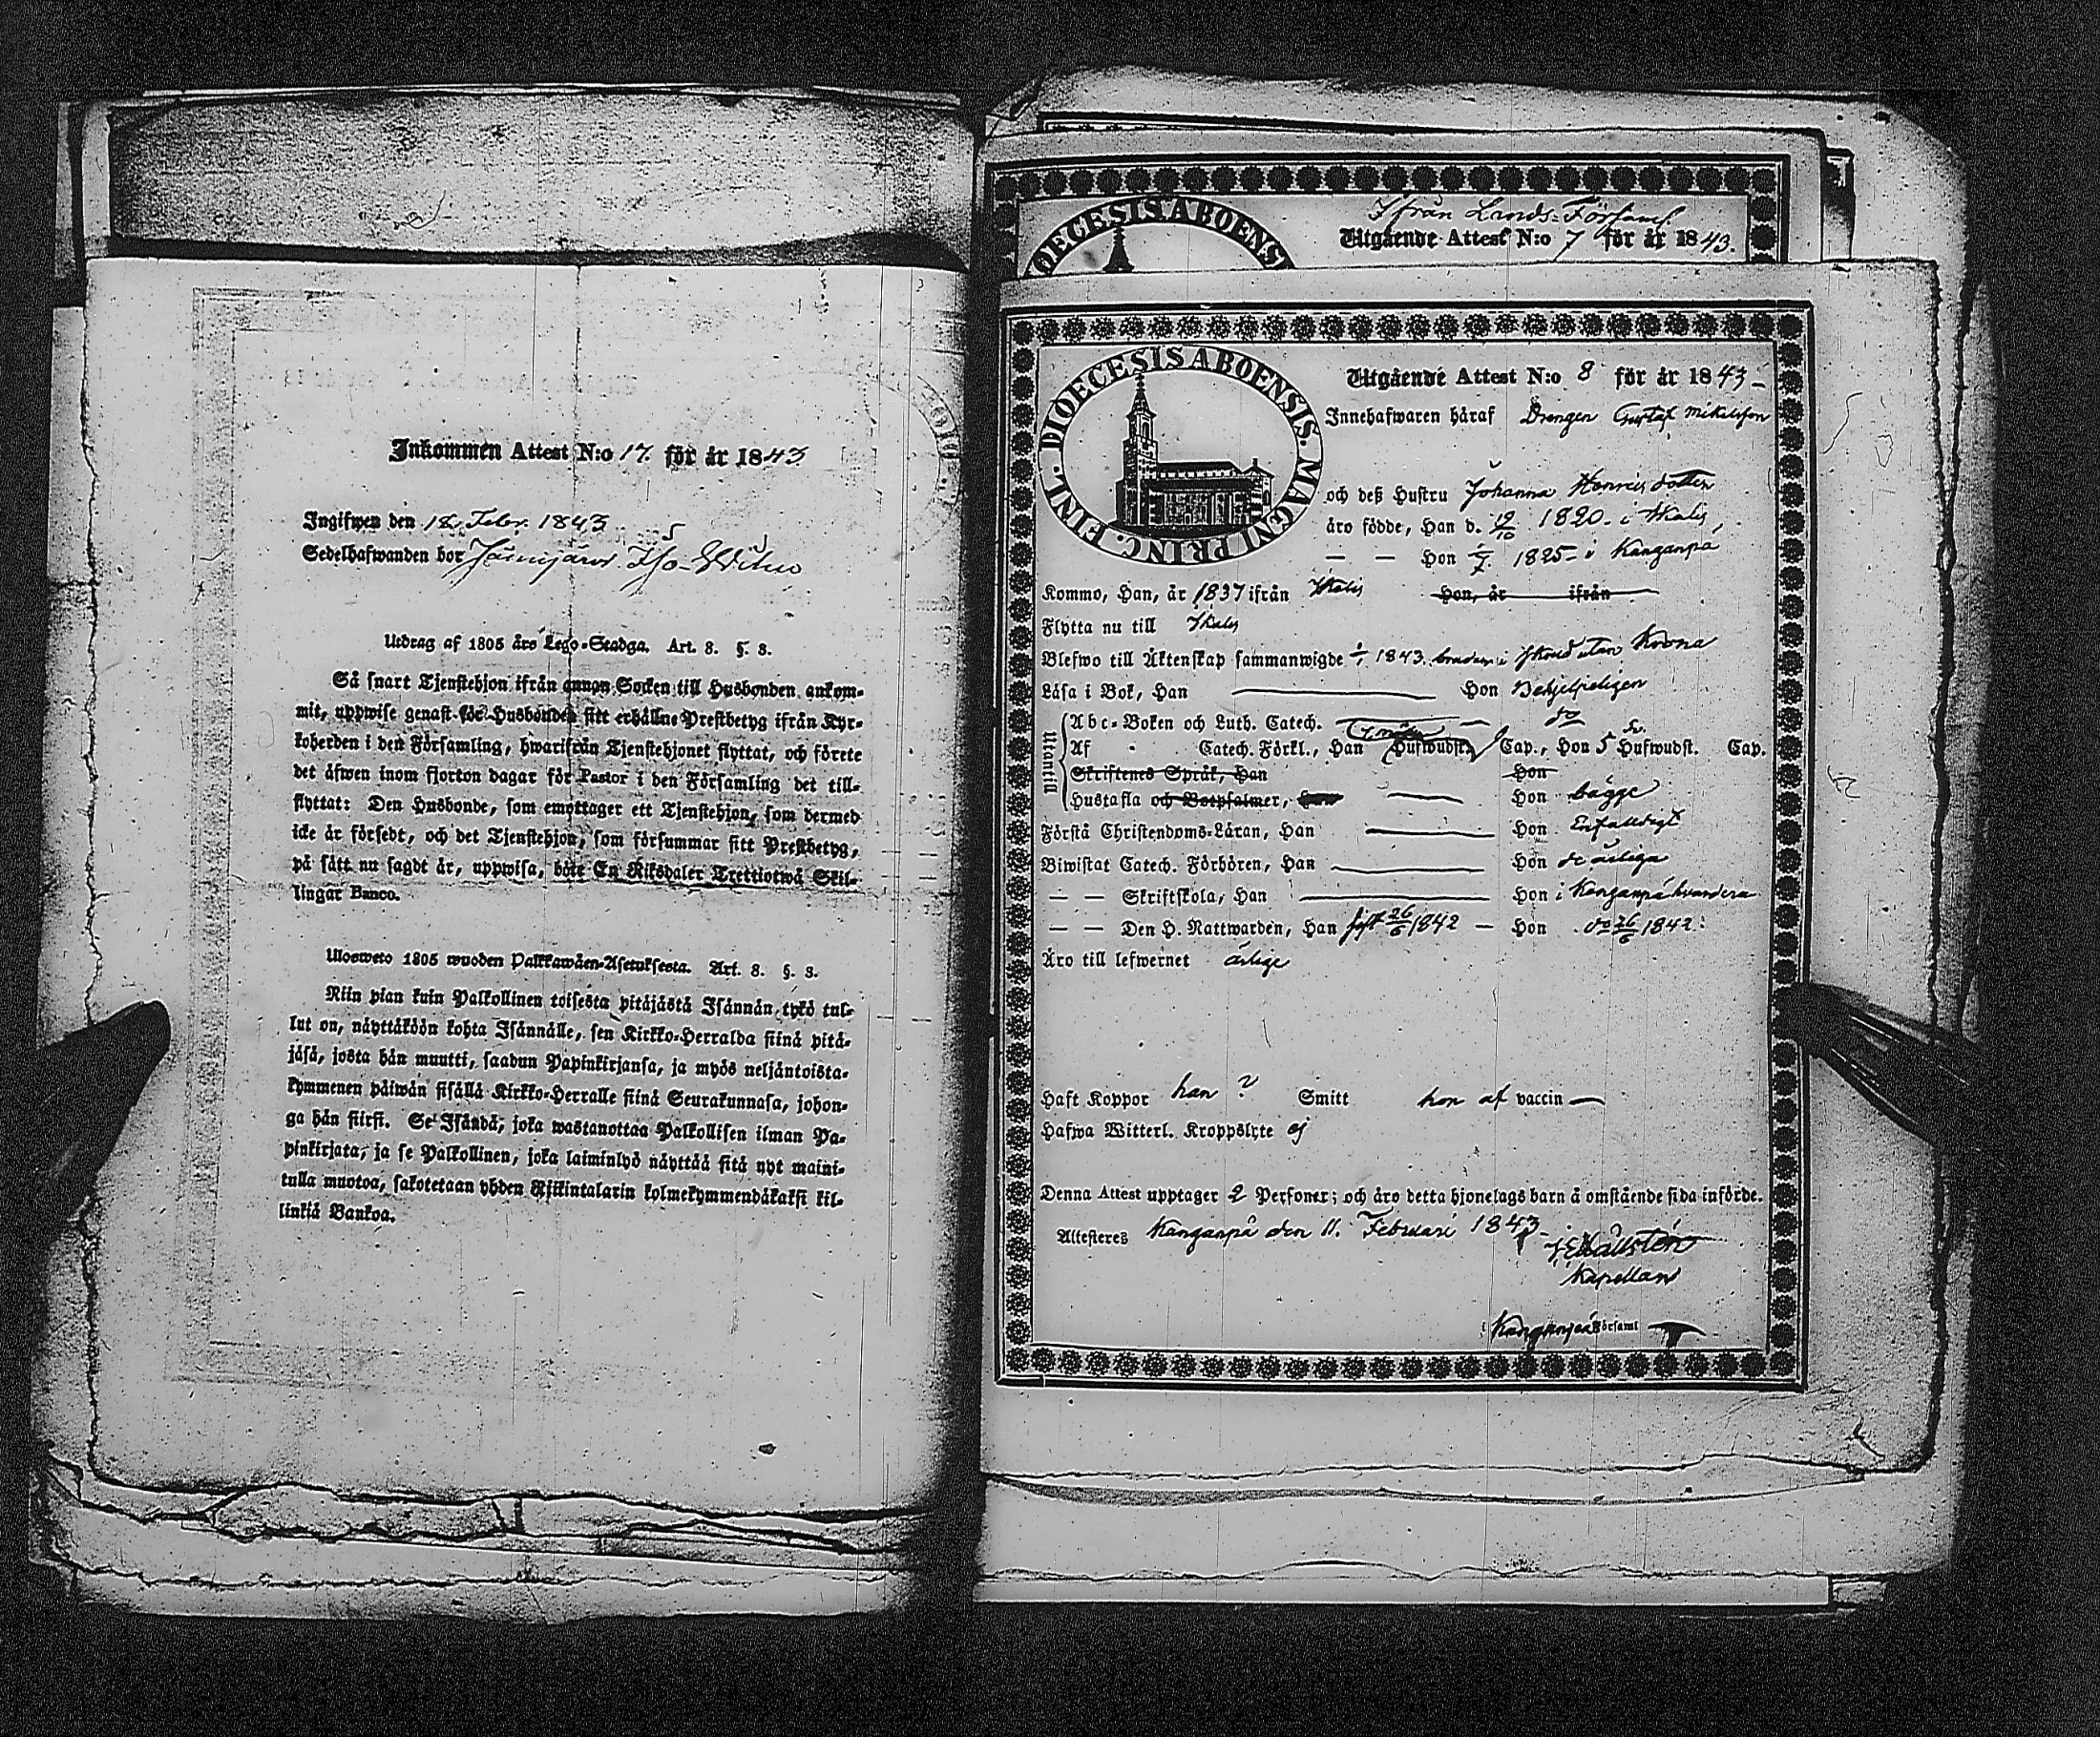 Inkommen Attest N:o 17. för år 1843.
Ingifwen den 18. Febr. 1843
Sedelhafwanden bor Jämijärvi Iso-
Utdrag af 1805 års Lego-Stadga. Art. 8. §. 8.
Så snart Tjenstehjon ifrån annan Socken till Husbonden ankom-
mit, uppwise genast för Husbonden sitt erhållne Prestbetyg ifrån Kyr-
koherden i den Församling, hwarifrån Tjenstehjonet flyttat, och förete
det äfwen inom fjorton dagar för Pastor i den Församling det till-
flyttat: Den Husbonde, som emottager ett Tjenstehjon, som dermed
icke är försedt, och det Tjenstehjon, som försummar sitt Prestbetyg,
på sätt nu sagdt är, uppwisa, böte En Riksdaler Trettiotwå Skil-
lingar Banco.
Ulosweto 1805 wuoden Palkkawäen-Asetuksesta. Art. 8. §. 8.
Niin pian kuin Palkollinen toisesta pitäjästä Isännän tykö tul-
lut on, näyttäköön kohta Isännälle, sen Kirkko-Herralda siinä pitä-
jäsä, josta hän muutti, saadun Papinkirjansa, ja myös neljäntoista-
kymmenen päiwän sisällä Kirkko-Herralle siinä Seurakunnasa, johon-
ga hän siirsi. Se Isändä, joka wastanottaa Palkollisen ilman Pa-
pinkirjata, ja se Palkollinen, joka laiminlyö näyttää sitä nyt maini-
tulla muotoa, sakotetaan yhden Rjikintalarin kolmekymmendäkaksi kil-
linkiä Bankoa.
DIOECESIS ABOENSIS
Ifrån Lands-Församl
Utgående Attest N:o 7 för år 1843.
DIOECESIS ABOENSIS. MAGNI PRINC. FINL.
Utgående Attest N:o 8 för år 1843
Innehafwaren häraf Drengen Gustaf Mikelsson
och deß Hustru Johanna Henricsdotter
äro födde, Han d. 1820 i Ikalis,
— — Hon 1825 i Kanganpä
Kommo, Han, år 1837 ifrån Ikalis Hon, år ifrån
Flytta nu till Ikalis
Blefwo till Äktenskap sammanwigde 1843. bruden i skrud utan Krona
Läsa i Bok, Han — Hon Behjelpeligen
Utantill
Abc-Boken och Luth. Catech. — do
Af Catech. Förkl., Han Hufwudst. Cap., Hon 5 Hufwudst. Cap.
Skriftenes Språk, Han Hon
Hustafla och Botpsalmer, — Hon bägge
Förstå Christendoms-Läran, Han — Hon Enfalldigt
Biwistat Catech. Förhören, Han — Hon de årliga
— — Skriftskola, Han — Hon i Kanganpä
— — Den H. Nattwarden, Han sist 26/6 1842 — Hon do 26/6 1842.
Äro till lefwernet ärlige
Haft Koppor han ? Smitt hon af vaccin —
Hafwa Witterl. Kroppslyte ej
Denna Attest upptager 2 Personer; och äro detta hjonelags barn å omstående sida införde.
Attesteres Kanganpä den 11. Februari 1843.
Kapellan
i Kanganpää Församl